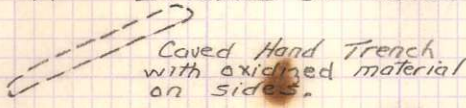 Caved Hand Trench
with oxidized material
on sides.